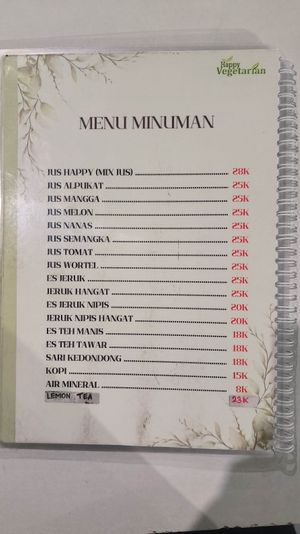 Happy
Vegetarian
MENU MINUMAN
JUS HAPPY (MIX JUS) 28K
JUS ALPUKAT 25K
JUS MANGGA 25K
JUS MELON 25K
JUS NANAS 25K
JUS SEMANGKA 25K
JUS TOMAT 25K
JUS WORTEL 25K
ES JERUK 25K
JERUK HANGAT 25K
ES JERUK NIPIS 20K
JERUK NIPIS HANGAT 20K
ES TEH MANIS 18K
ES TEH TAWAR 18K
SARI KEDONDONG 18K
KOPI 15K
AIR MINERAL 8K
LEMON TEA 23K